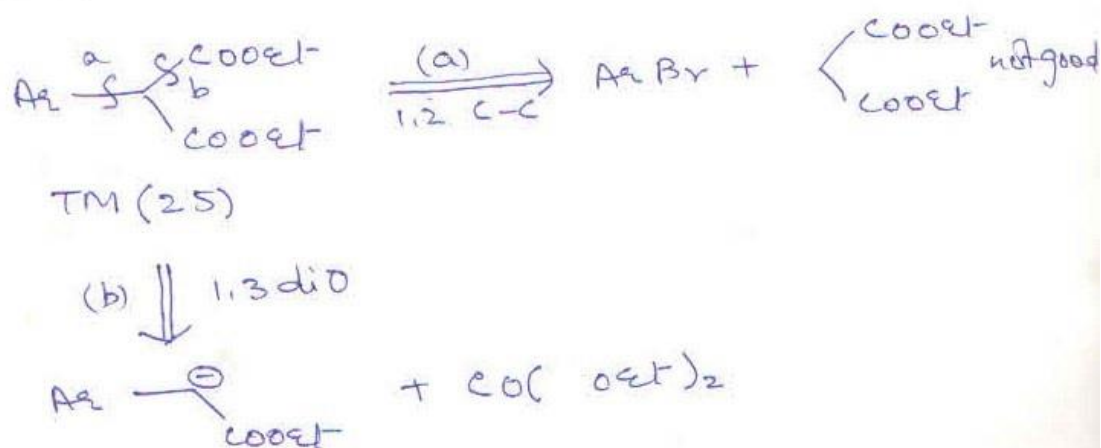 a
COOEt
Ar
b
COOEt
(a)
1,2 C-C
Ar Br +
COOEt
COOEt
not good
TM (25)
(b) 1,3 diO
Ar ⊖
COOEt
+ CO( OEt)₂